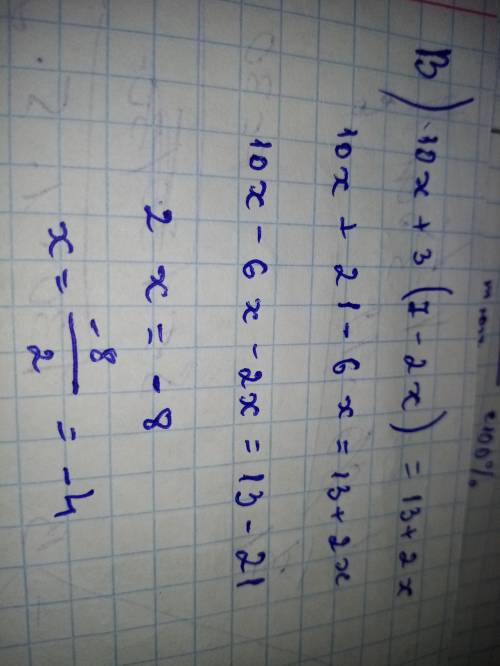 В) 10x + 3 (7 - 2x) = 13 + 2x
10x + 21 - 6x = 13 + 2x
10x - 6x - 2x = 13 - 21
2x = -8
x = -8/2 = -4